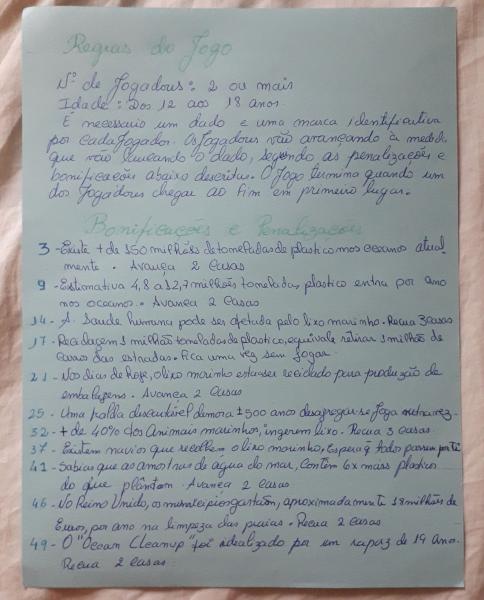 Regras do Jogo
Nº de Jogadores: 2 ou mais
Idade: Dos 12 aos 18 anos.
É necessário um dado e uma marca identificativa
por cada Jogador. Os Jogadores vão avançando à medida
que vão lançando o dado, segundo as penalizações e
bonificações abaixo descritas. O Jogo termina quando um
dos Jogadores chegar ao fim em primeiro lugar.
Bonificações e Penalizações
3 - Existe + de 150 milhões de toneladas de plastico nos oceanos atual
mente. Avança 2 casas
9 - Estimativa 4,8 a 12,7 milhões toneladas plastico entra por ano
nos oceanos. Avança 2 casas
14 - A Saude humana pode ser afetada pelo lixo marinho. Recua 3 casas
17 - Reciclagem 1 milhão toneladas de plastico, equivale retirar 1 milhão de
carros das estradas. Fica uma vez sem jogar.
21 - Nos dias de hoje, o lixo marinho esta a ser reciclado para produção de
embalagens. Avança 2 casas
25 - Uma palha descartável demora ± 500 anos desagregar-se Joga outra vez.
32 - + de 40% dos Animais marinhos, ingerem lixo. Recua 3 casas
37 - Existem navios que recolhem o lixo marinho. Espera q todos passem por ti
41 - Sabias que as amostras de água do mar, contêm 6x mais plastico
do que plâncton. Avança 2 casas
46 - No Reino Unido, os municipios gastam, aproximadamente 18 milhões de
Euros, por ano na limpeza das praias. Recua 2 casas
49 - O "Ocean Cleanup" foi idealizado por um rapaz de 19 Anos.
Recua 2 casas.